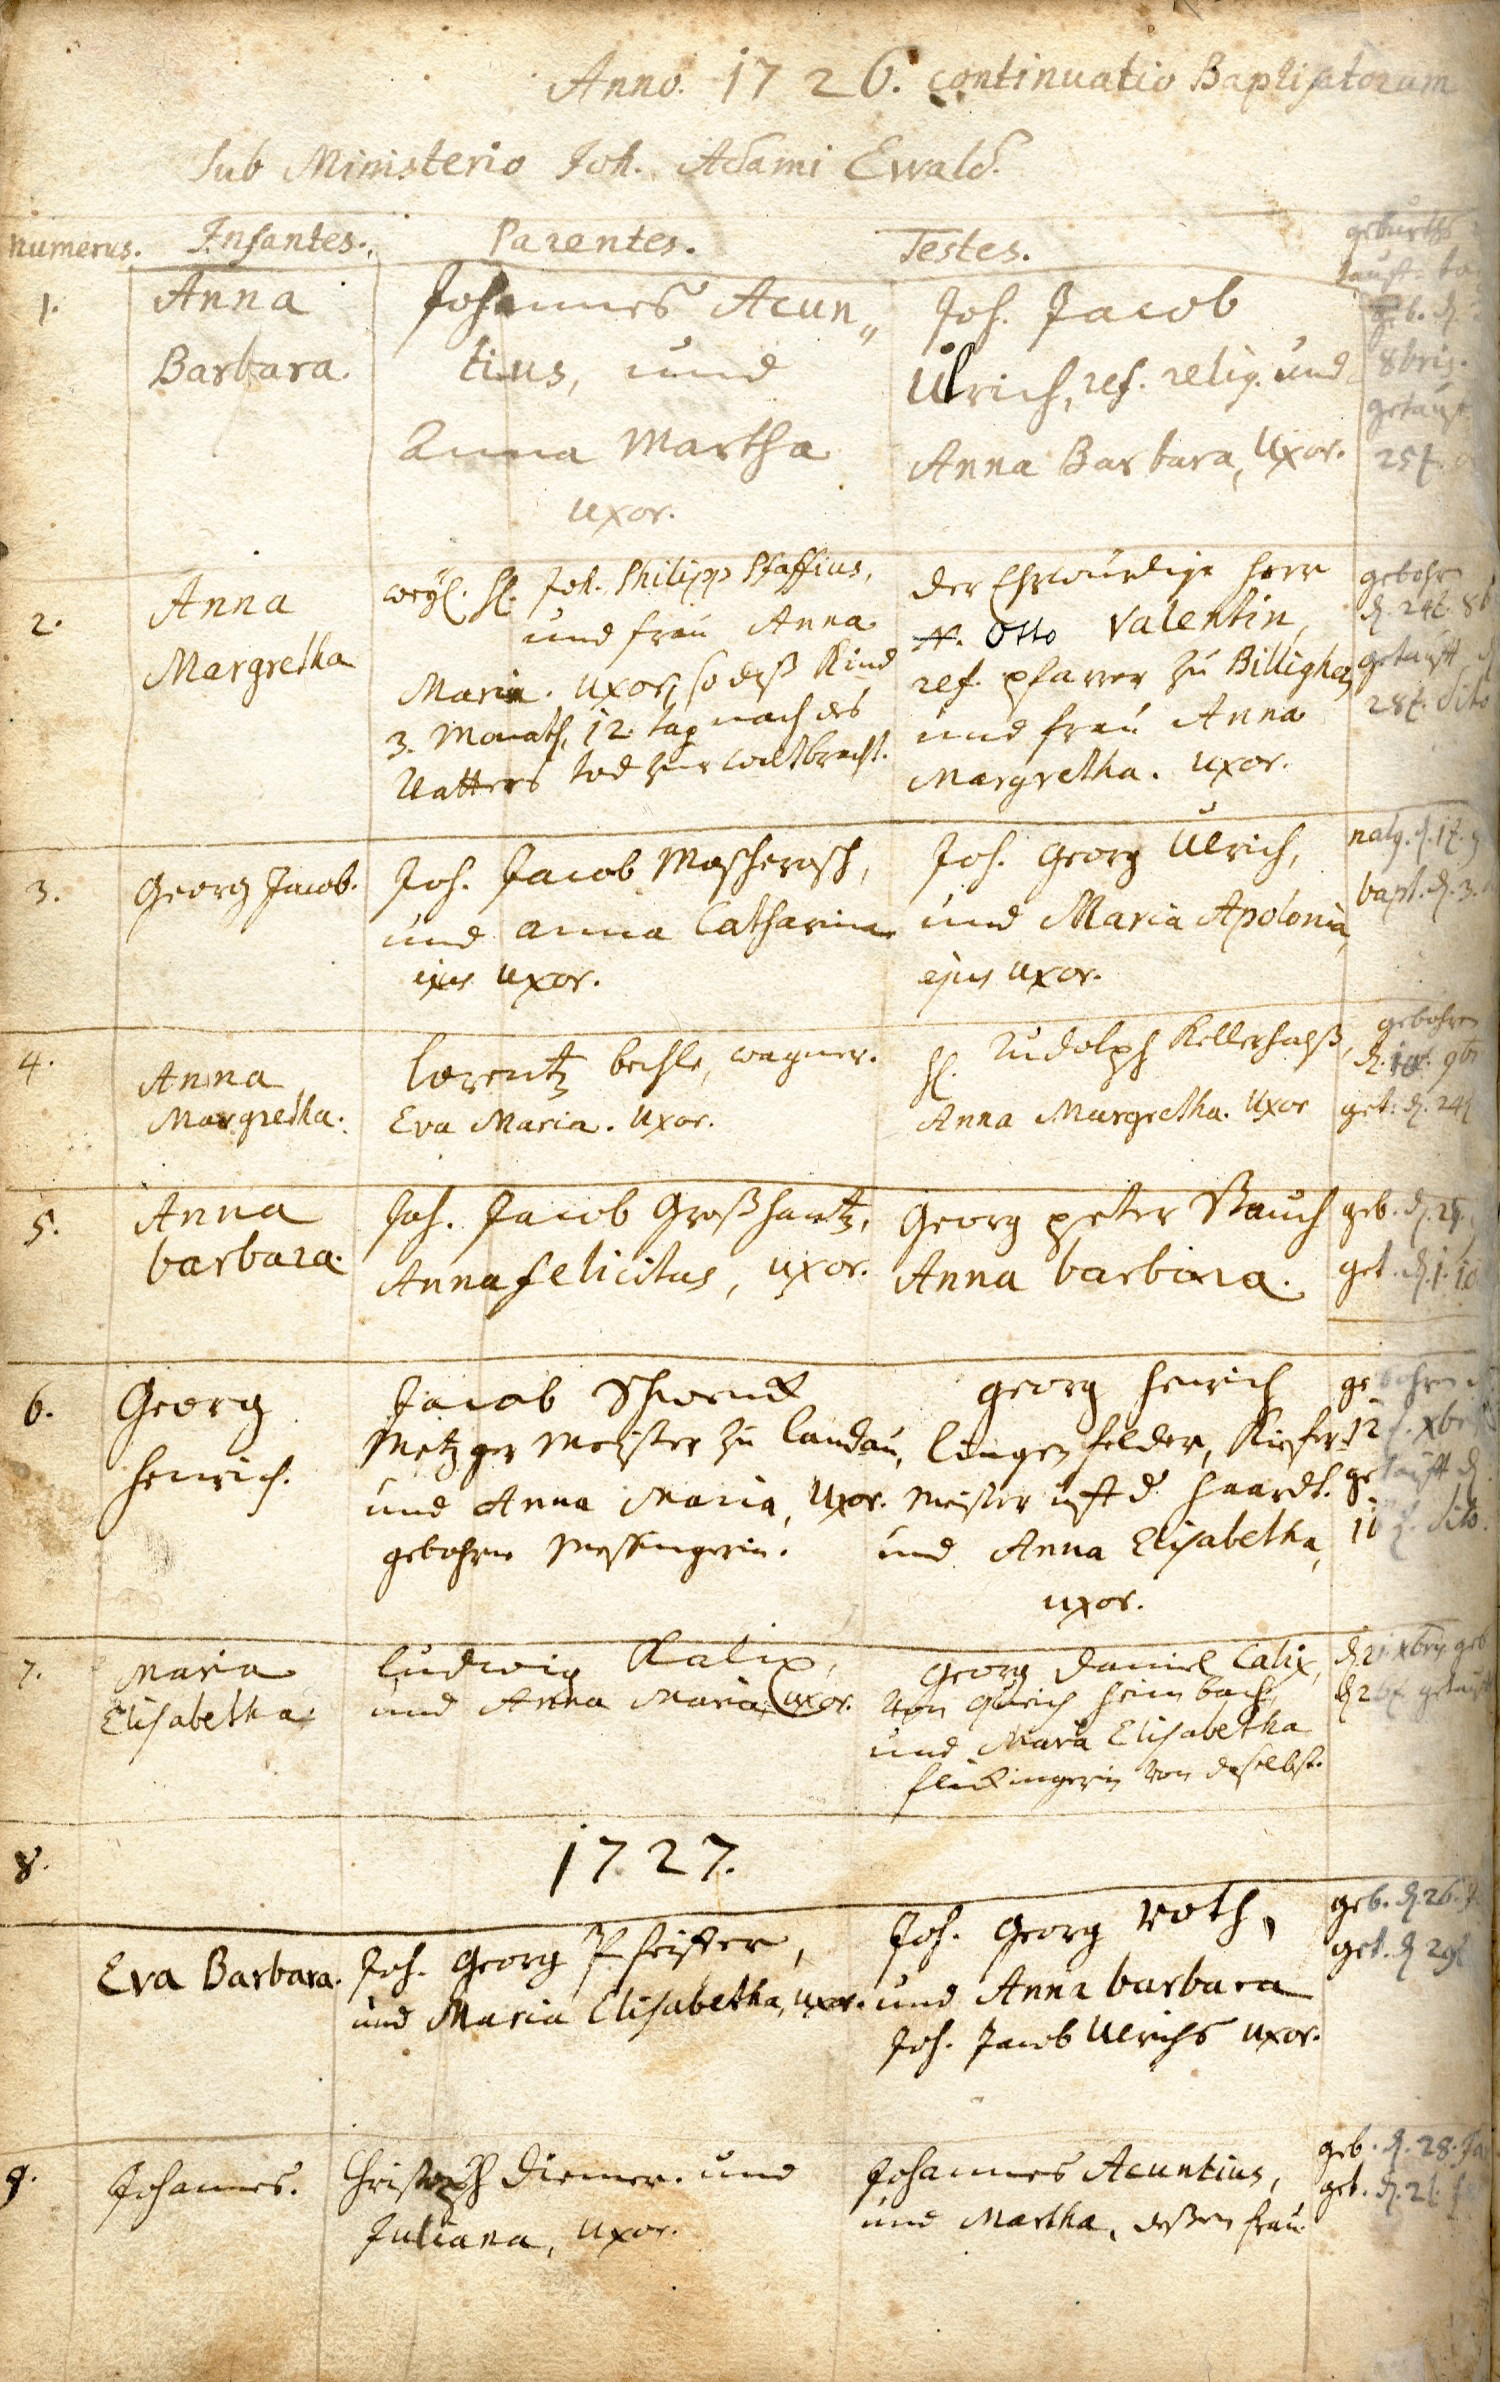 Anno. 1726. continuatio Baptisatorum
Sub Ministerio Joh. Adami Ewald.
numerus. Infantes. Parentes. Testes. geburths
tauff-
1. Anna Johannes Acun„ Joh. Jacob geb. d.
Barbara. tius, und Ulrich, ref. relig. und 8bris.
Anna Martha Anna Barbara, Uxor. getauft
uxor. 25t.
2. Anna weyl. H. Joh. Philipp Pfaffius, der Ehrwürdige Herr gebohren
Margretha und frau Anna Otto Valentin, d. 24t. 8b
Maria. uxor, so dß Kind ref. pfarrer zu Billigheim getaufft d
3. Monath, 12. tag nach des und frau Anna 28t. dito
Vatters tod zur welt bracht. Margretha. uxor.
3. Georg Jacob. Joh. Jacob Moscherosch, Joh. Georg Ulrich, natg. d. 1t. 9
und Anna Catharina und Maria Apolonia, bapt. d. 3.
ejus uxor. ejus uxor.
4. Anna Lorentz bechle, wagner. H. Rudolph Kellerhalß, gebohren
Margretha. Eva Maria. Uxor. Anna Margretha. Uxor d. 9br
get. d. 24t
5. Anna Joh. Jacob Großhantz, Georg peter Bauch geb. d. 29.
barbara. Anna felicitas, uxor. Anna barbara. get. d. 1. 10
6. Georg Jacob Schwenck Georg Henrich gebohren d
Henrich. Metzger Meister zu Landau, Lingenfelder, Kiefer 12t. xbris
und Anna Maria, Uxor. Meister uff d Haardt. getaufft d.
gebohrne Messingerin. und Anna Elisabetha, 16t. dito.
uxor.
7. Maria Ludwig Kalix, Georg Daniel Calix, d. 21 xbris geb
Elisabetha. und Anna Maria, uxor. von heimbach, d. 26t getaufft
und Maria Elisabetha
flickingerin von daselbst.
8. 1727.
Eva Barbara. Joh. Georg Pfeiffer, Joh. Georg Roth, geb. d. 26. J
und Maria Elisabetha, uxor. und Anna barbara get. d. 29t
Joh. Jacob Ulrichs uxor.
9. Johannes. Christoph Diemer. und Johannes Acuntius, geb. d. 28. Ja
Juliana, uxor. und Martha, deßen frau. get. d. 2t. f